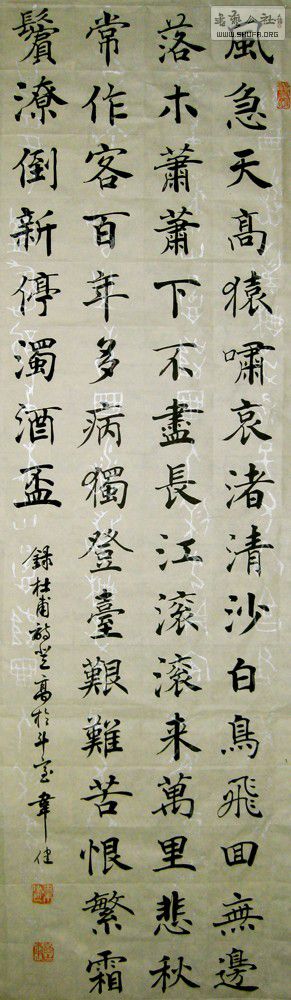 風急天髙猿嘯哀渚清沙白鳥飛回無邊
落木蕭蕭下不盡長江滚滚来萬里悲秋
常作客百年多病獨登臺艱難苦恨繁霜
鬢潦倒新停濁酒盃
錄杜甫詩登高於斗室韋
WWW.SHUFA.ORG